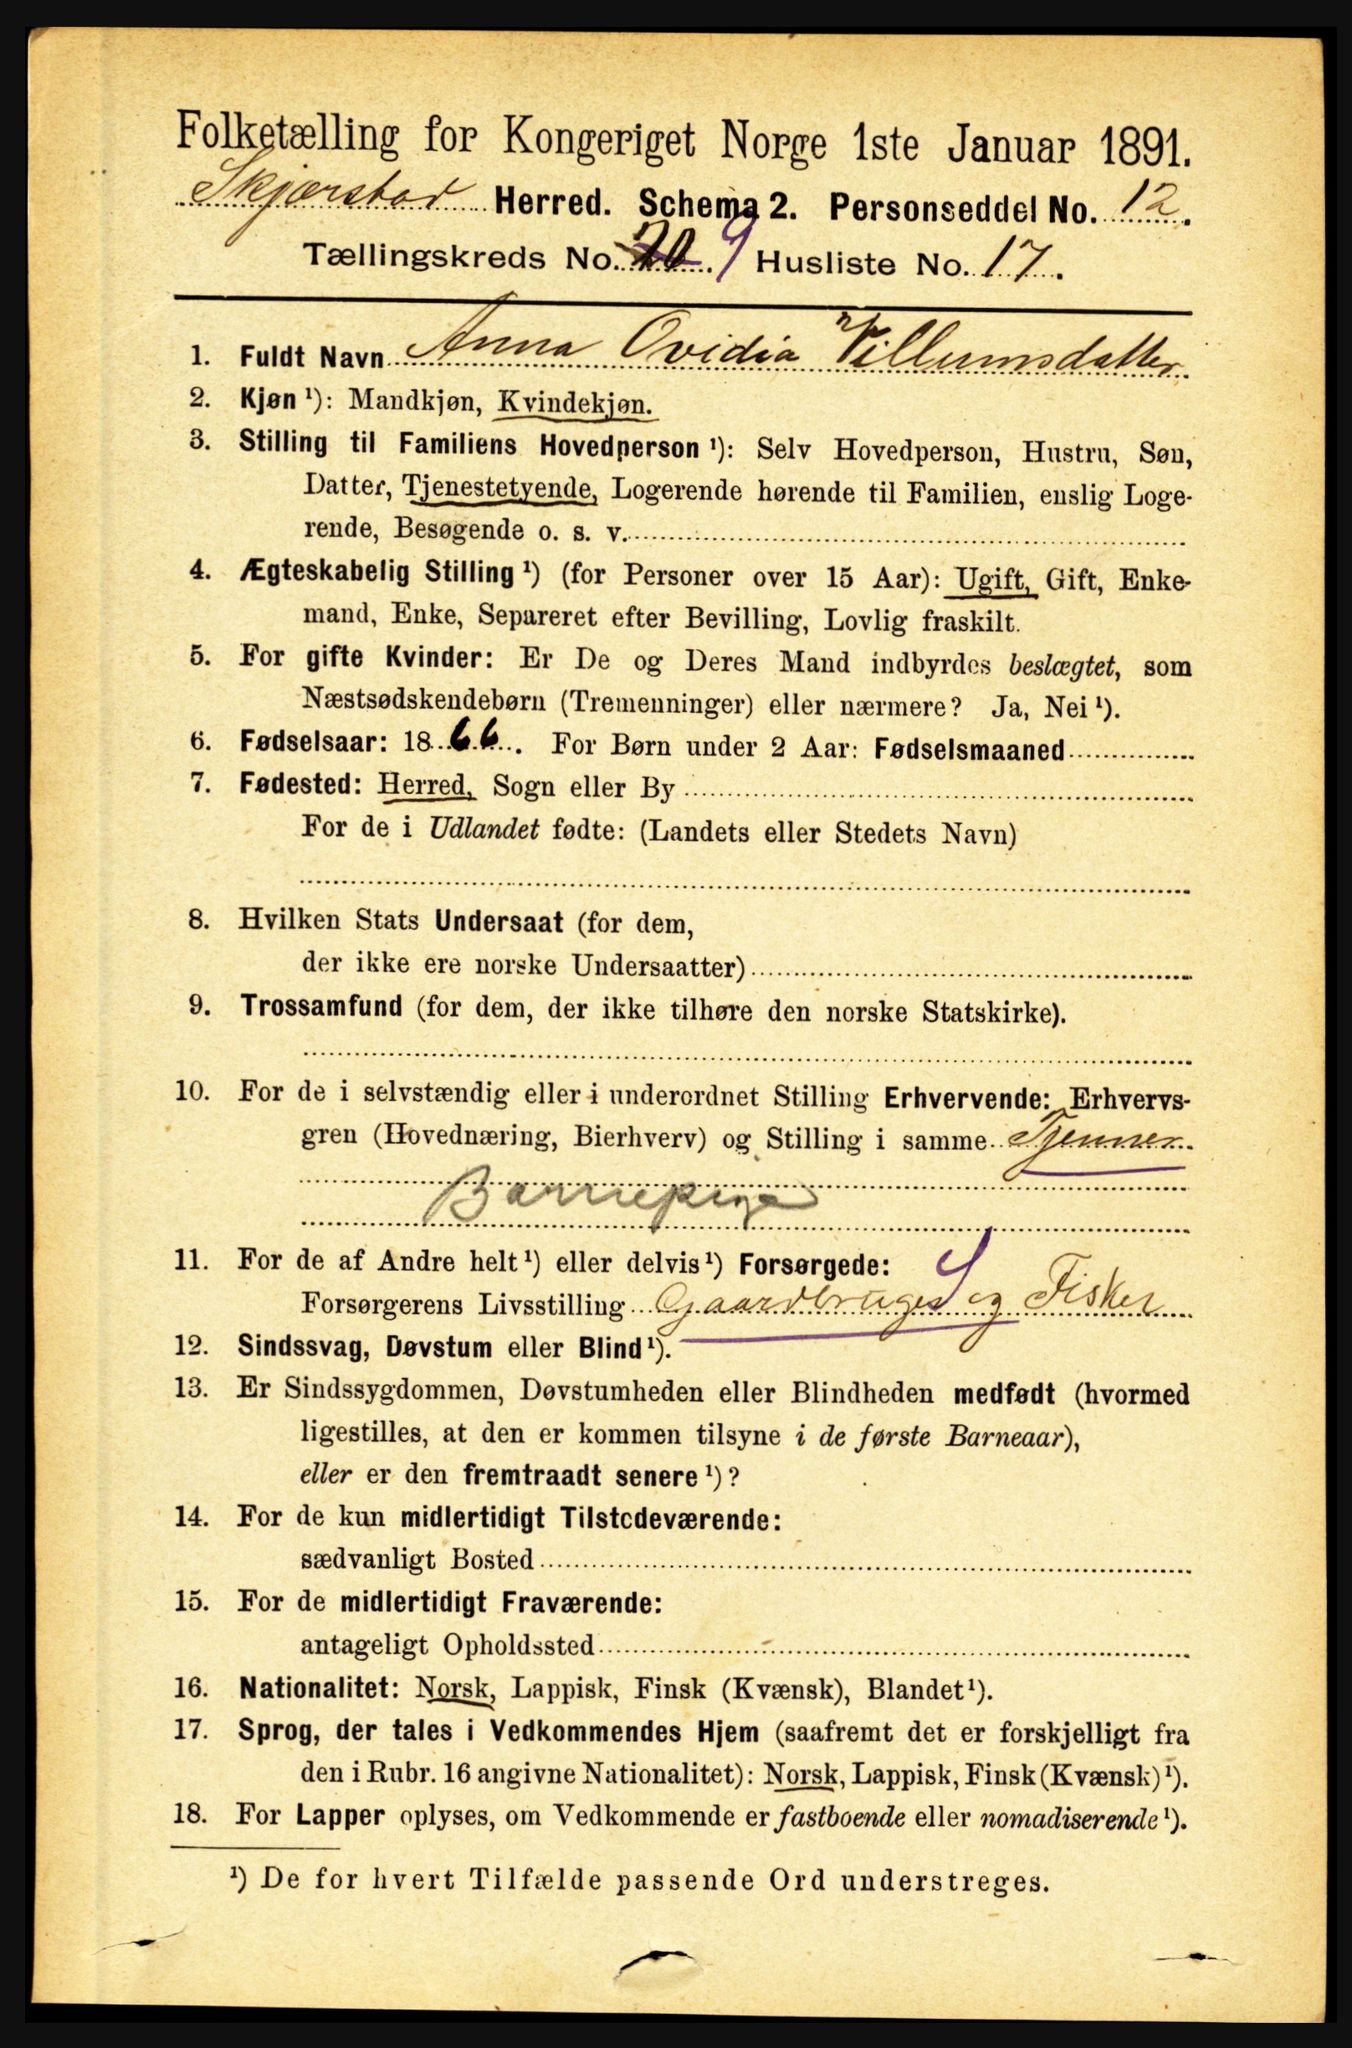 Folketælling for Kongeriget Norge 1ste Januar 1891.
Skjærstad Herred. Schema 2. Personseddel No. 12.
Tællingskreds No. 20. 9 Husliste No. 17.
1. Fuldt Navn Anna Ovidia Villumsdatter
2. Kjøn ¹): Mandkjøn, Kvindekjøn.
3. Stilling til Familiens Hovedperson ¹): Selv Hovedperson, Hustru, Søn,
Datter, Tjenestetyende, Logerende hørende til Familien, enslig Loge-
rende, Besøgende o. s. v.
4. Ægteskabelig Stilling ¹) (for Personer over 15 Aar): Ugift, Gift, Enke-
mand, Enke, Separeret efter Bevilling, Lovlig fraskilt.
5. For gifte Kvinder: Er De og Deres Mand indbyrdes beslægtet, som
Næstsødskendebørn (Tremenninger) eller nærmere? Ja, Nei ¹).
6. Fødselsaar: 1866. For Børn under 2 Aar: Fødselsmaaned
7. Fødested: Herred, Sogn eller By
For de i Udlandet fødte: (Landets eller Stedets Navn)
8. Hvilken Stats Undersaat (for dem,
der ikke ere norske Undersaatter)
9. Trossamfund (for dem, der ikke tilhøre den norske Statskirke).
10. For de i selvstændig eller i underordnet Stilling Erhvervende: Erhvervs-
gren (Hovednæring, Bierhverv) og Stilling i samme Tjener
Barnepige
11. For de af Andre helt ¹) eller delvis ¹) Forsørgede:
Forsørgerens Livsstilling Gaardbruger og Fisker
12. Sindssvag, Døvstum eller Blind ¹).
13. Er Sindssygdommen, Døvstumheden eller Blindheden medfødt (hvormed
ligestilles, at den er kommen tilsyne i de første Barneaar),
eller er den fremtraadt senere ¹)?
14. For de kun midlertidigt Tilstedeværende:
sædvanligt Bosted
15. For de midlertidigt Fraværende:
antageligt Opholdssted
16. Nationalitet: Norsk, Lappisk, Finsk (Kvænsk), Blandet ¹).
17. Sprog, der tales i Vedkommendes Hjem (saafremt det er forskjelligt fra
den i Rubr. 16 angivne Nationalitet): Norsk, Lappisk, Finsk (Kvænsk) ¹).
18. For Lapper oplyses, om Vedkommende er fastboende eller nomadiserende ¹).
¹) De for hvert Tilfælde passende Ord understreges.